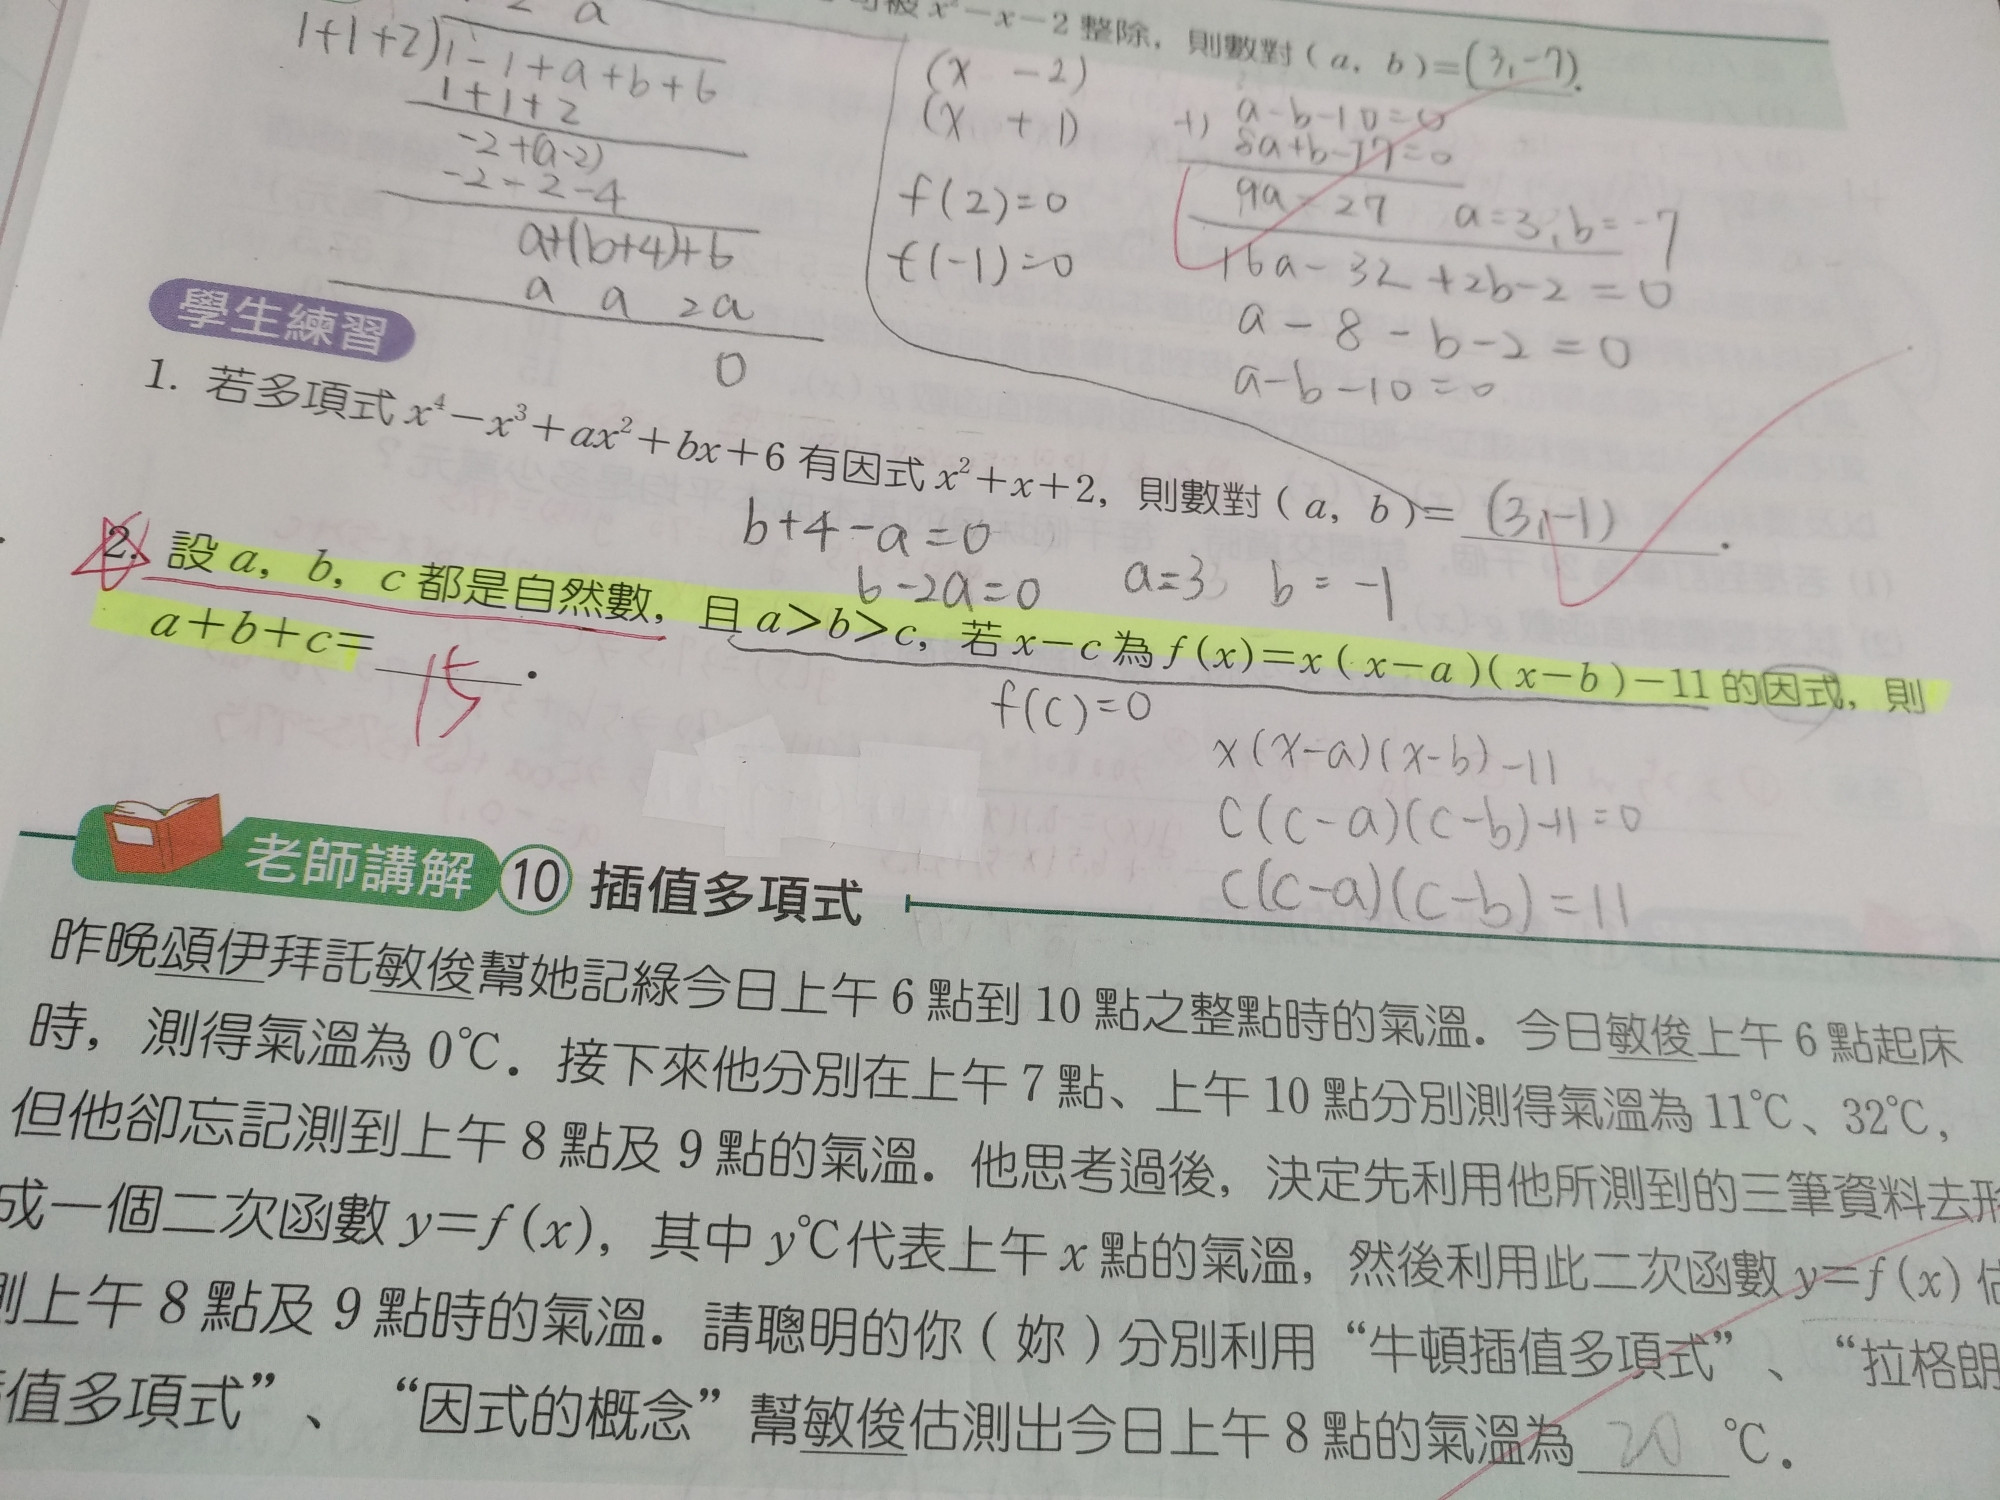 2 a
1+1+2)1-1+a+b+6
1+1+2
-2+(a-2)
-2-2-4
a+(b+4)+6
a a 2a
0
可被 x²-x-2 整除，則數對(a，b)=(3,-7).
(x -2)
(x +1)
f(2)=0
f(-1)=0
+) a-b-10=0
8a+b-17=0
9a=27 a=3,b=-7
16a-32+2b-2=0
a-8-b-2=0
a-b-10=0
學生練習
1. 若多項式 x⁴-x³+ax²+bx+6 有因式 x²+x+2，則數對(a，b)=(3,-1).
b+4-a=0
b-2a=0 a=3 b=-1
2. 設 a，b，c 都是自然數，且 a>b>c，若 x-c 為 f(x)=x(x-a)(x-b)-11 的因式，則
a+b+c= 15 .
f(c)=0
x(x-a)(x-b)-11
c(c-a)(c-b)-11=0
c(c-a)(c-b)=11
老師講解 10 插值多項式
昨晚頌伊拜託敏俊幫她記綠今日上午 6 點到 10 點之整點時的氣溫．今日敏俊上午 6 點起床
時，測得氣溫為 0℃．接下來他分別在上午 7 點、上午 10 點分別測得氣溫為 11℃、32℃，
但他卻忘記測到上午 8 點及 9 點的氣溫．他思考過後，決定先利用他所測到的三筆資料去形
成一個二次函數 y=f(x)，其中 y℃代表上午 x 點的氣溫，然後利用此二次函數 y=f(x) 估
測上午 8 點及 9 點時的氣溫．請聰明的你（妳）分別利用“牛頓插值多項式”、“拉格朗
值多項式”、“因式的概念”幫敏俊估測出今日上午 8 點的氣溫為 20 ℃．